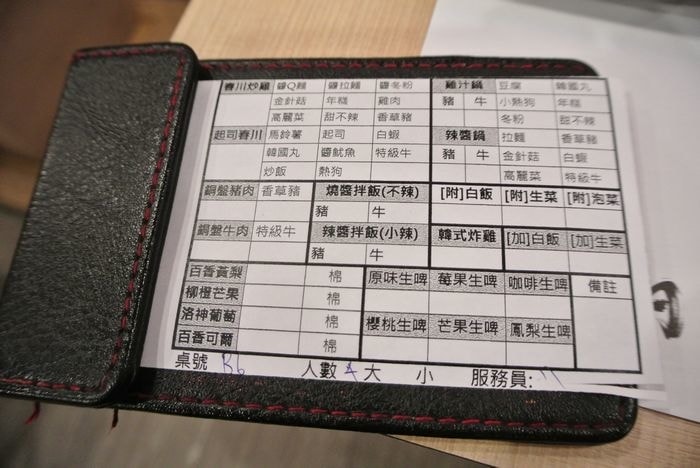 春川炒雞 醬Q麵 醬拉麵 醬冬粉 雞汁鍋 豆腐 韓國丸
金針菇 年糕 雞肉 豬 牛 小熱狗 年糕
高麗菜 甜不辣 香草豬 冬粉 甜不辣
起司春川 馬鈴薯 起司 白蝦 辣醬鍋 拉麵 香草豬
韓國丸 醬魷魚 特級牛 豬 牛 金針菇 白蝦
炒飯 熱狗 高麗菜 特級牛
銅盤豬肉 香草豬 燒醬拌飯(不辣) [附]白飯 [附]生菜 [附]泡菜
豬 牛
銅盤牛肉 特級牛 辣醬拌飯(小辣) 韓式炸雞 [加]白飯 [加]生菜
豬 牛
百香黃梨 棉 原味生啤 莓果生啤 咖啡生啤 備註
柳橙芒果 棉
洛神葡萄 棉 櫻桃生啤 芒果生啤 鳳梨生啤
百香可爾 棉
桌號 B6 人數 4 大 小 服務員: 11